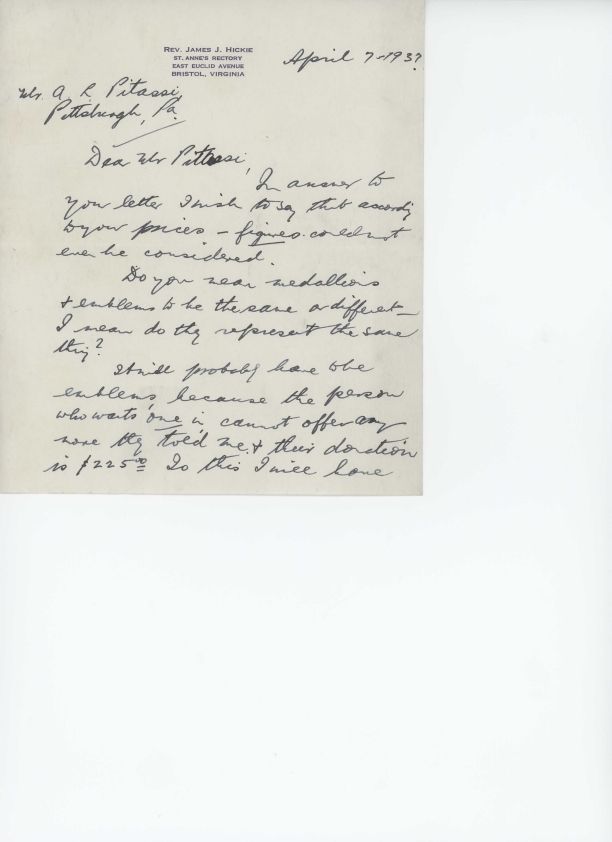 REV. JAMES J. HICKIE
ST. ANNE'S RECTORY
EAST EUCLID AVENUE
BRISTOL, VIRGINIA
April 7-1937
Mr. A. R. Pitassi,
Pittsburgh, Pa.
Dear Mr Pitassi,
In answer to
your letter I wish to say that according
to your prices – figures could not
even be considered.
Do you mean medallions
& emblems to be the same or different –
I mean do they represent the same
thing?
It will probably have to be
emblems, because the person
who wants one in cannot offer any
more they told me, & their donation
is $225.00 To this I will have